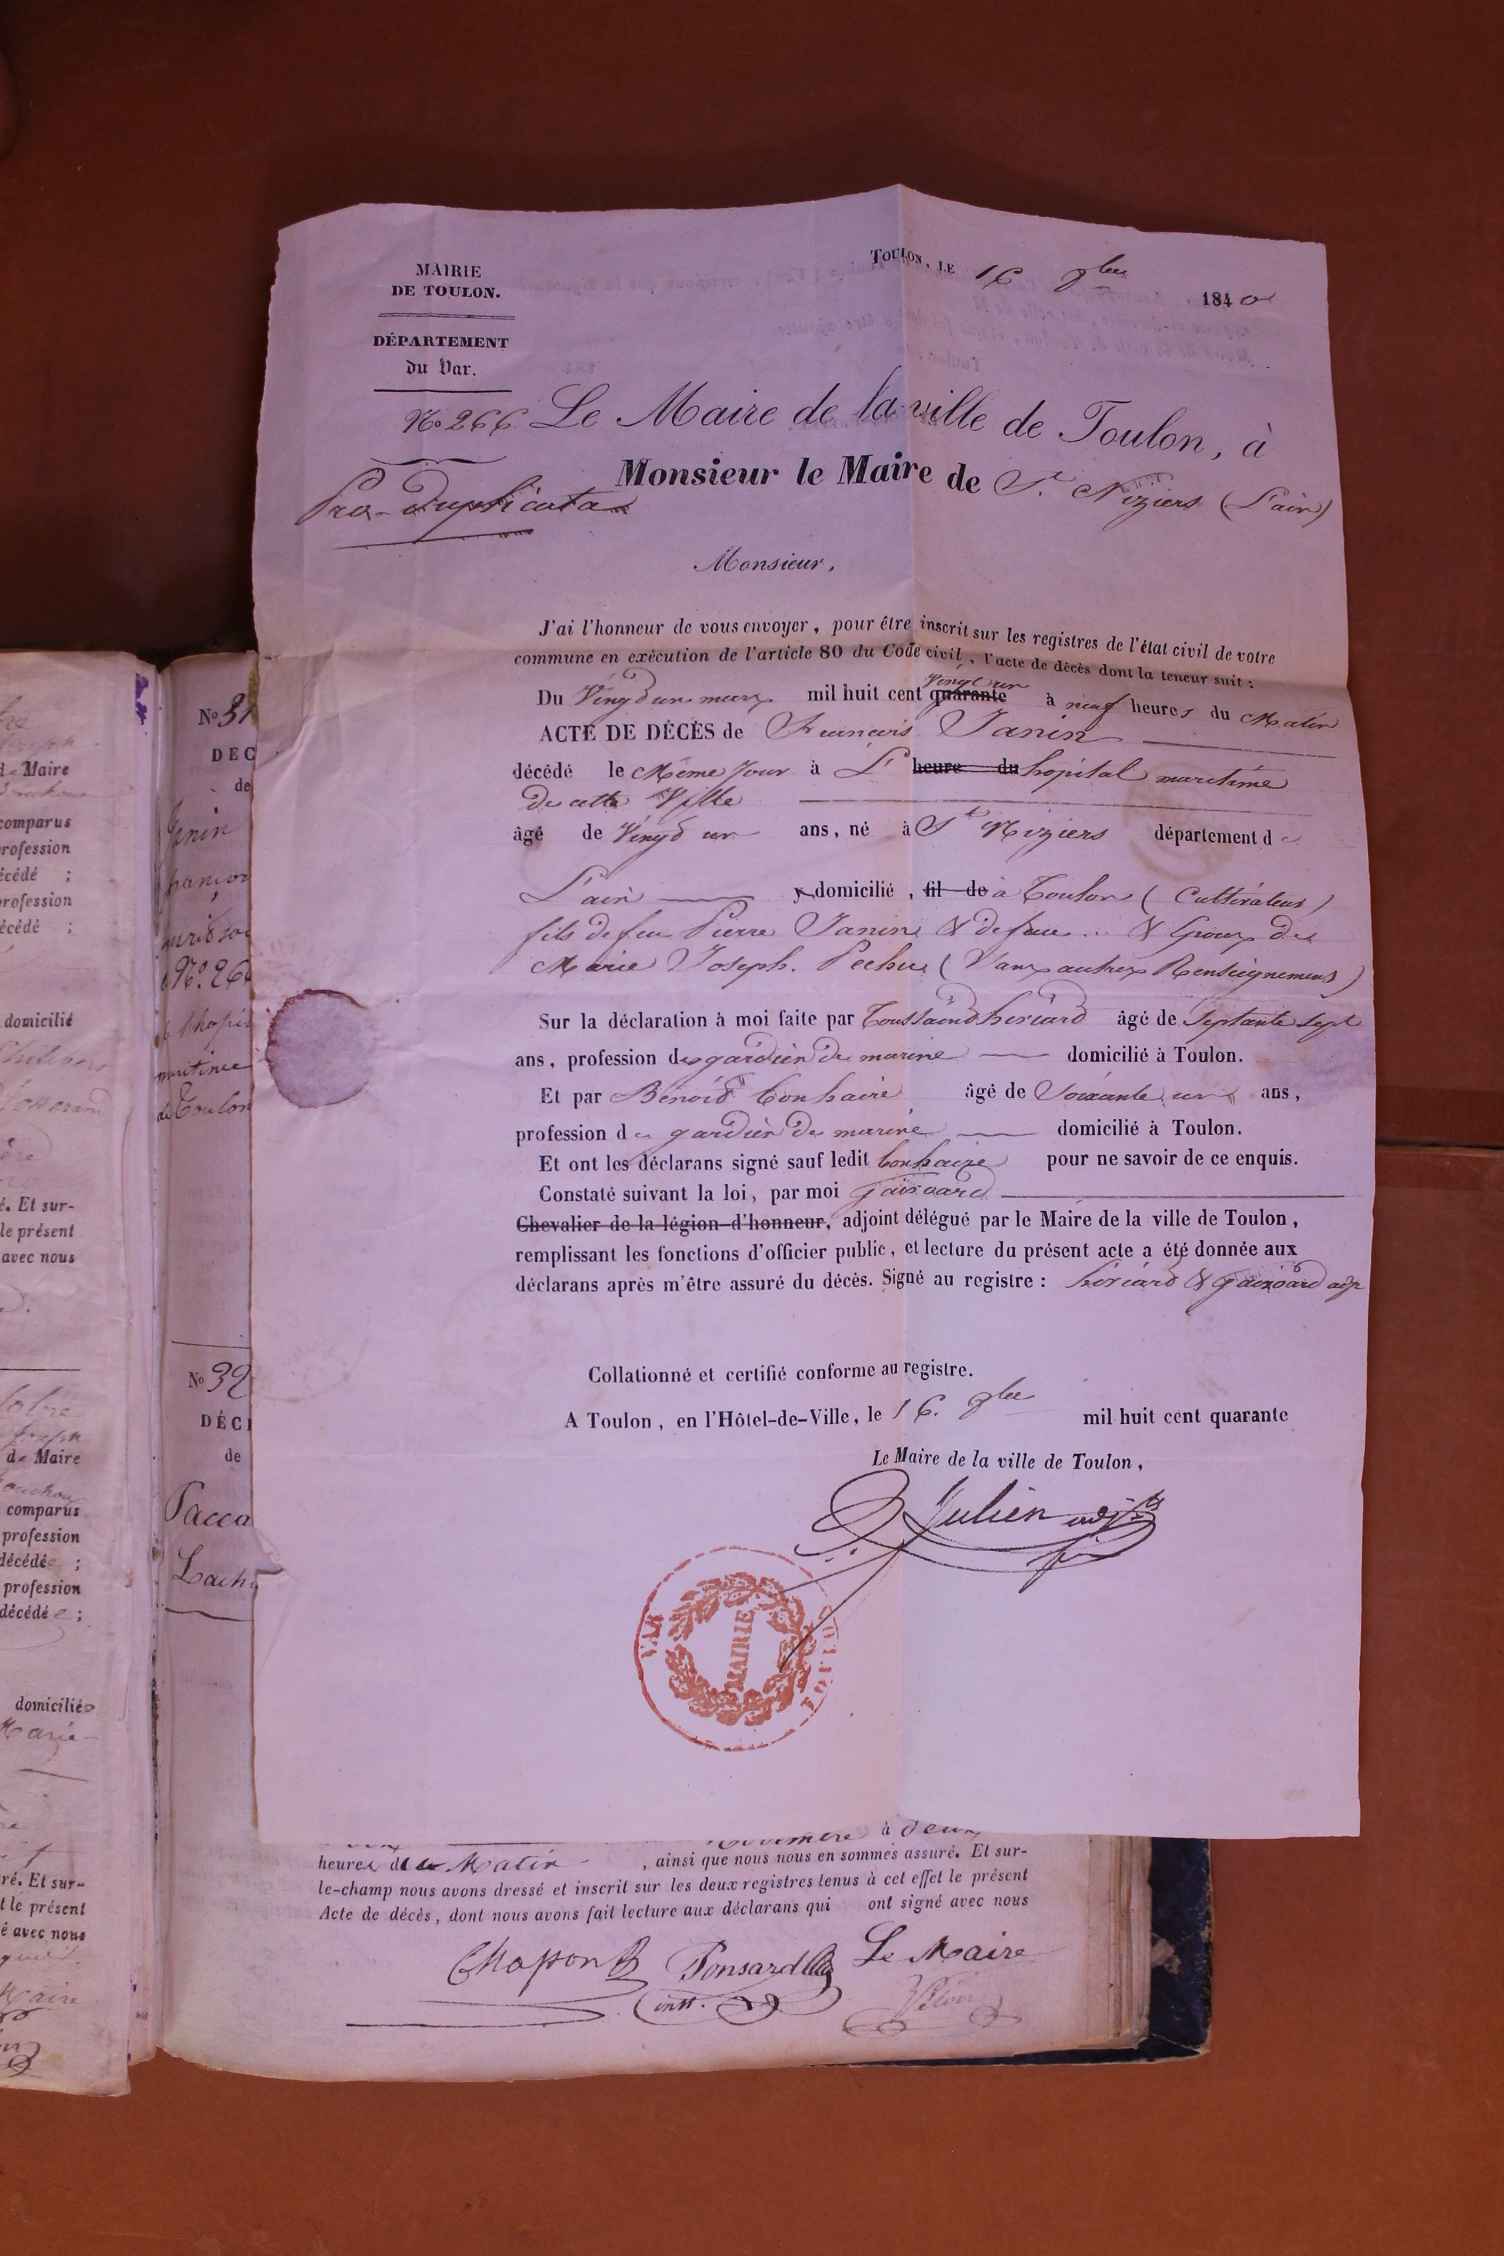 MAIRIE
DE TOULON.
DÉPARTEMENT
du Var.
No 266
Pro-Duplicata
TOULON, LE 16 9bre 1840
Le Maire de la ville de Toulon, à
Monsieur le Maire de St. Niziers (L'ain)
Monsieur,
J'ai l'honneur de vous envoyer, pour être inscrit sur les registres de l'état civil de votre
commune en exécution de l'article 80 du Code civil, l'acte de décès dont la teneur suit :
vingt un
Du Vingt un mars mil huit cent quarante à neuf heures du Matin
ACTE DE DÉCÈS de François Janin
décédé le Même Jour à L' heure du hopital maritime
de cette Ville
âgé de Vingt un ans, né à St Niziers département de
L'ain domicilié, fil de à Toulon (Cultivateur)
fils de feu Pierre Janin & de feue .. & Epoux de
Marie Joseph. Pechu (Sans autres Renseignemens)
Sur la déclaration à moi faite par Toussaint hériard âgé de Septante sept
ans, profession de gardien de marine domicilié à Toulon.
Et par Benoit Bonhaire âgé de Soixante un ans,
profession de gardien de marine domicilié à Toulon.
Et ont les déclarans signé sauf ledit bonhaire pour ne savoir de ce enquis.
Constaté suivant la loi, par moi Gairoard
Chevalier de la légion-d'honneur, adjoint délégué par le Maire de la ville de Toulon,
remplissant les fonctions d'officier public, et lecture du présent acte a été donnée aux
déclarans après m'être assuré du décès. Signé au registre : hériard & Gairoard adjt
Collationné et certifié conforme au registre.
A Toulon, en l'Hôtel-de-Ville, le 16. 9bre mil huit cent quarante
Le Maire de la ville de Toulon,
Julien adjt
VAR
MAIRIE
TOULON
No 31
DEC
de
Janin
françoi
No. 26
l'hopit
maritime
de Toulon
No 32
DÉCÈ
de
Pacca
d Maire
comparus
profession
écédé ;
profession
écédé ;
domicilié
é. Et sur-
le présent
avec nous
de Maire
comparus
profession
décédé ;
profession
décédé ;
domicilié
Marie
ré. Et sur-
t le présent
é avec nous
à deux
heures du Matin, ainsi que nous nous en sommes assuré. Et sur-
le-champ nous avons dressé et inscrit sur les deux registres tenus à cet effet le présent
Acte de décès, dont nous avons fait lecture aux déclarans qui ont signé avec nous
Chapon Ponsard Le Maire
instr.